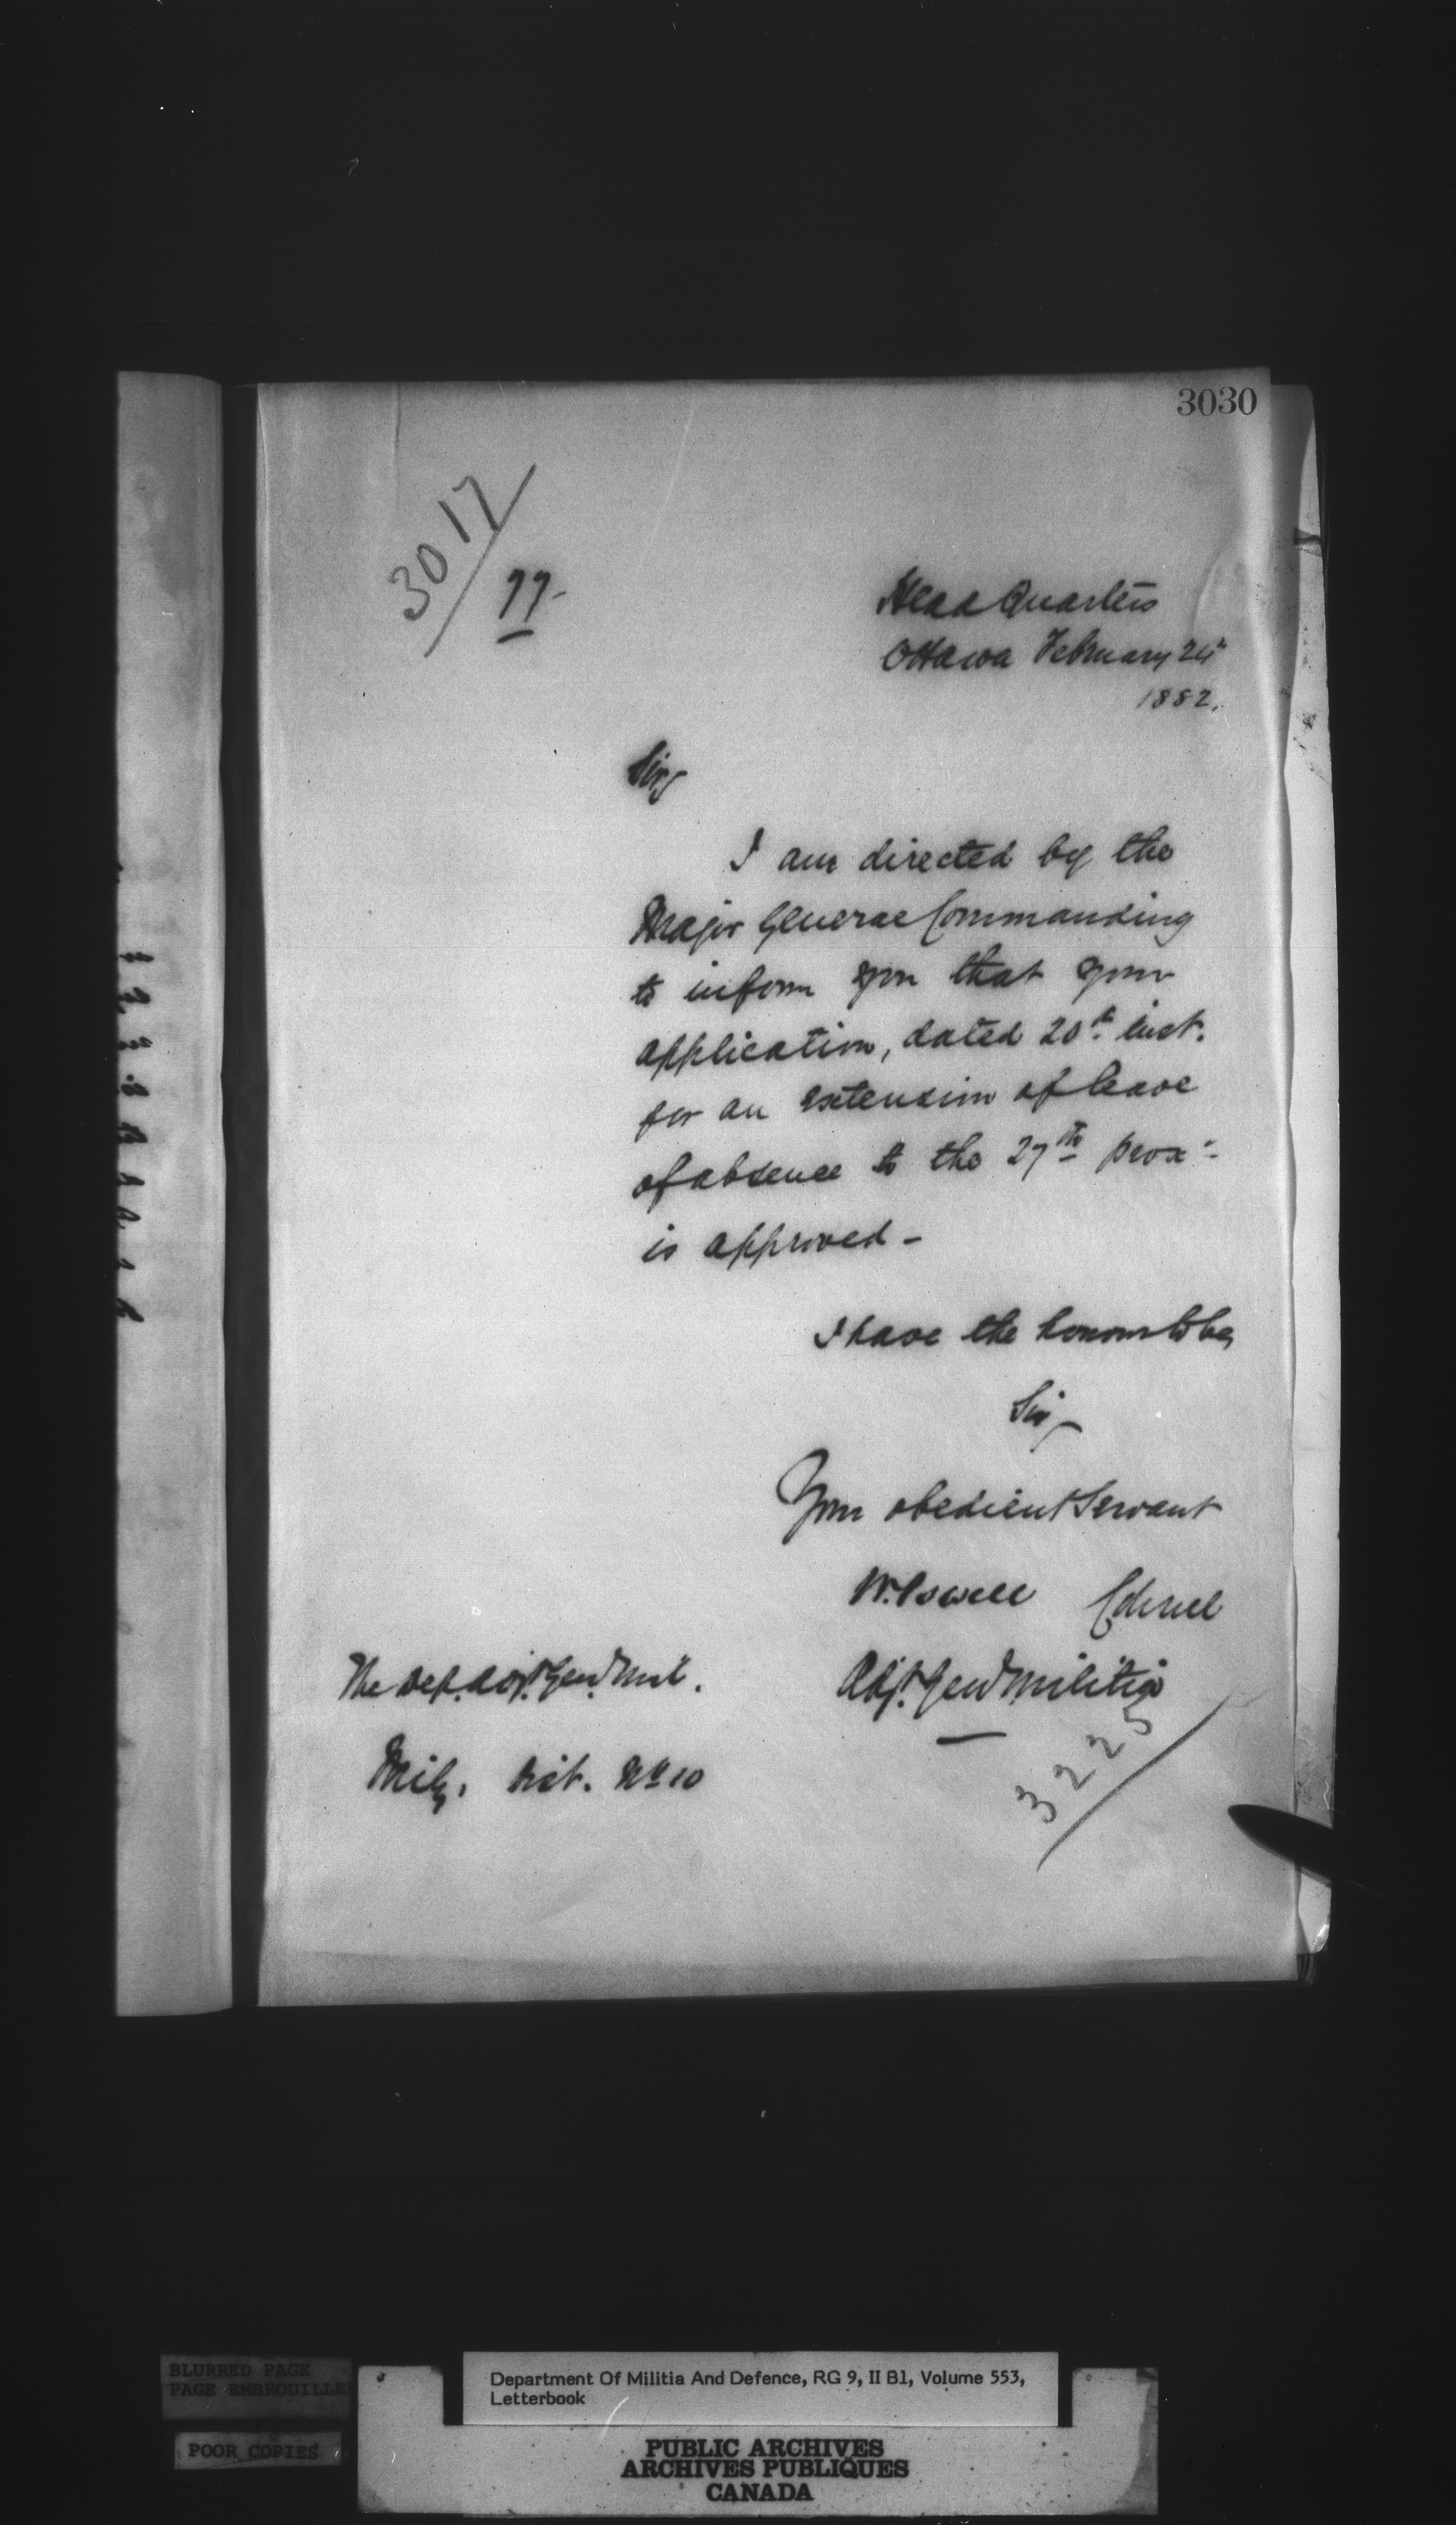 3030
3017
77-
Head Quarters
Ottawa February 24th
1882.
Sir,
I am directed by the
Major General Commanding
to inform you that your
application, dated 20th inst.
for an extension of leave
of absence to the 27th prox:
is approved -
I have the honour to be,
Sir,
Your obedient Servant
W. Powell Colonel
The Dep. Adjt. Genl. Mil.
Adjt. Genl Militia
Mily. Dist. No 10
3225
BLURRED PAGE
PAGE EMBROUILLE
POOR COPIES
Department Of Militia And Defence, RG 9, II B1, Volume 553,
Letterbook
PUBLIC ARCHIVES
ARCHIVES PUBLIQUES
CANADA